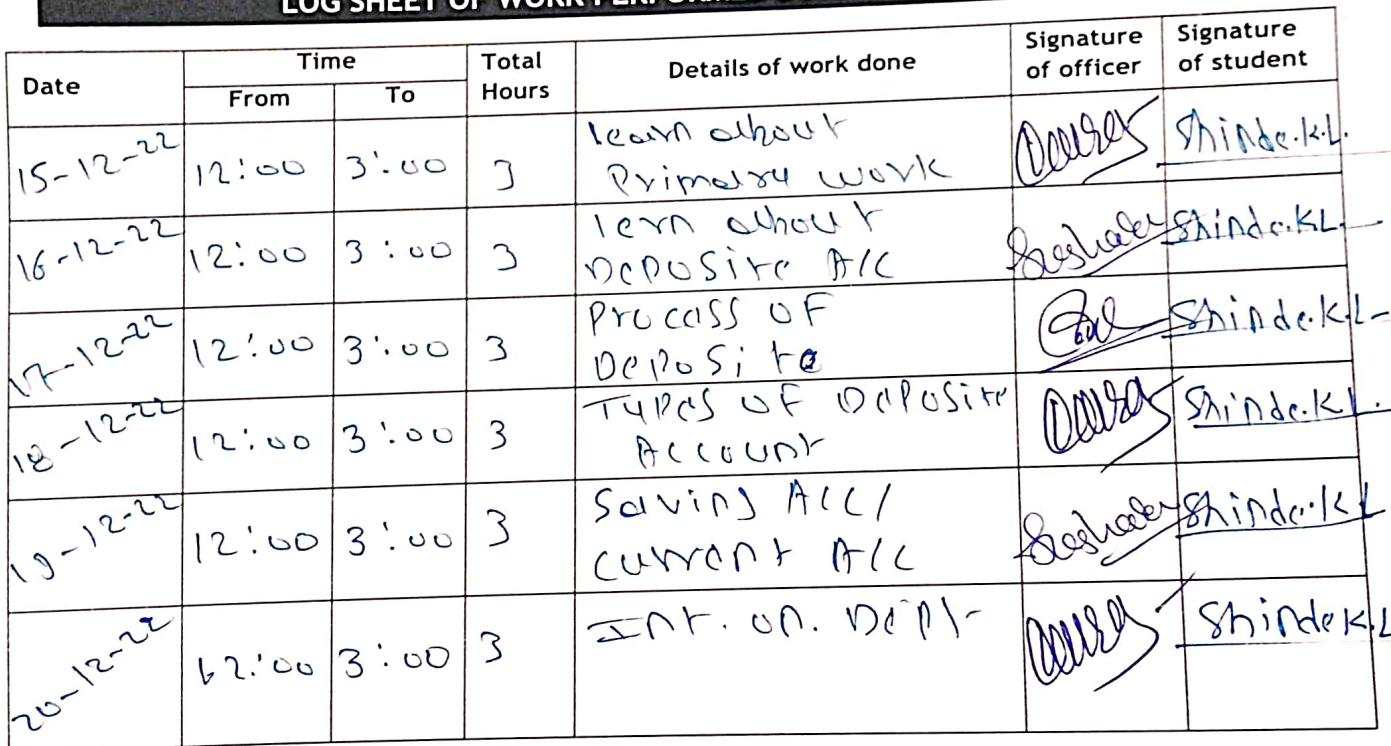 LOG SHEET OF WORK
Date Time Total Hours Details of work done Signature of officer Signature of student
From To
15-12-22 12:00 3:00 3 learn about Primary work Shinde.K.L.
16-12-22 12:00 3:00 3 lern about Deposite A/C Shinde.KL.
17-12-22 12:00 3:00 3 Process of Deposite Shinde.K.L-
18-12-22 12:00 3:00 3 Types of Deposite Account Shinde.K.L.
19-12-22 12:00 3:00 3 Saving Acc/ current A/c Shinde.kL
20-12-22 12:00 3:00 3 Int. on. Shinde K.L